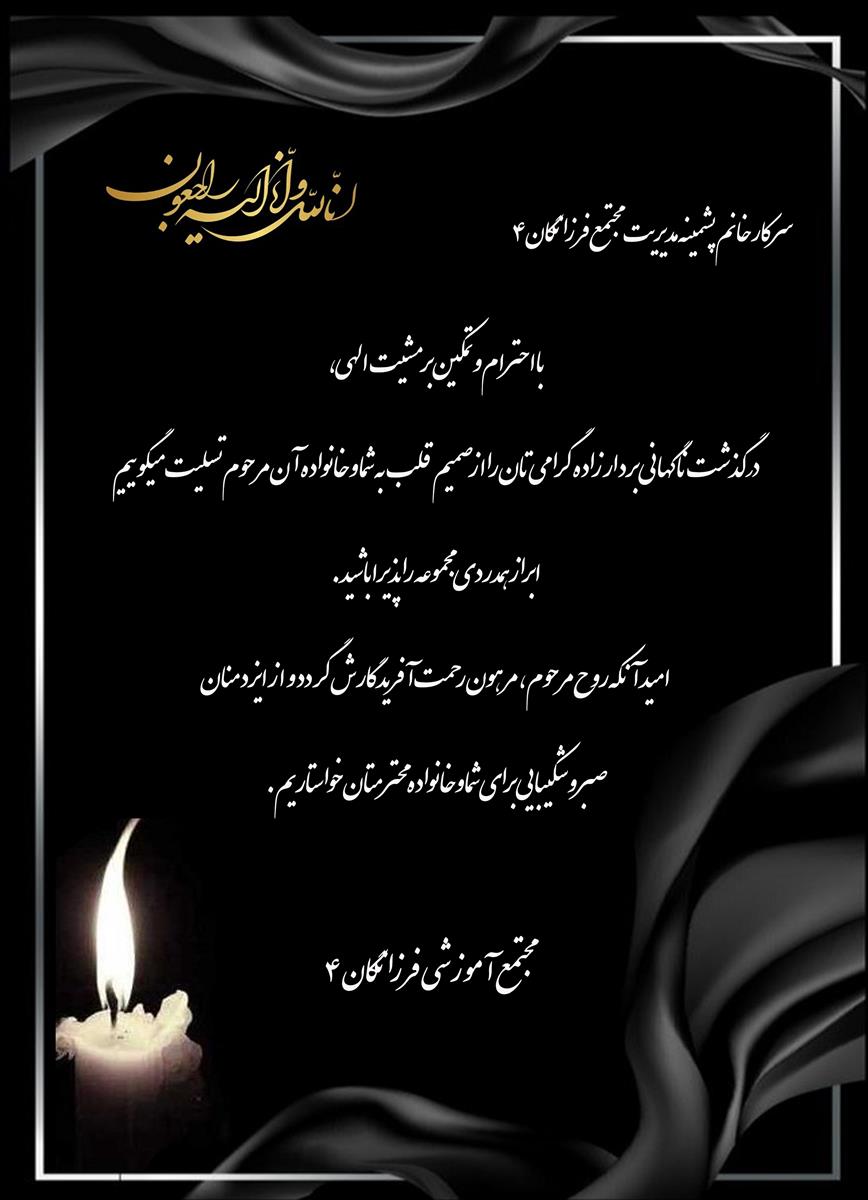 انا لله و انا الیه راجعون
سرکار خانم پشمینه مدیریت مجتمع فرزانگان ۴
با احترام و تمکین بر مشیت الهی،
درگذشت ناگهانی بردارزاده گرامی تان را از صمیم قلب به شما و خانواده آن مرحوم تسلیت میگوییم
ابراز همدردی مجموعه را پذیرا باشید.
امید آنکه روح مرحوم، مرهون رحمت آفریدگارش گردد و از ایزد منان
صبر و شکیبایی برای شما و خانواده محترمتان خواستاریم.
مجتمع آموزشی فرزانگان ۴